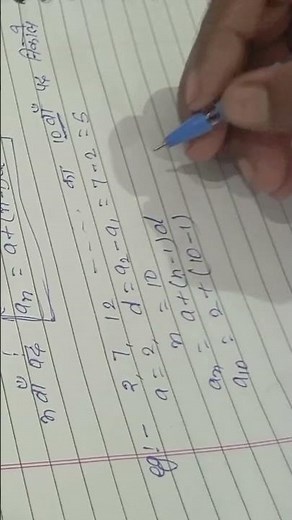 n वाँ पद : aₙ = a + (n-1)
eg:- 2, 7, 12 - - - - का 10 वाँ पद निकालें
a = 2, d = a₂ - a₁ = 7 - 2 = 5
n = 10
aₙ = a + (n-1)d
a₁₀ = 2 + (10-1)